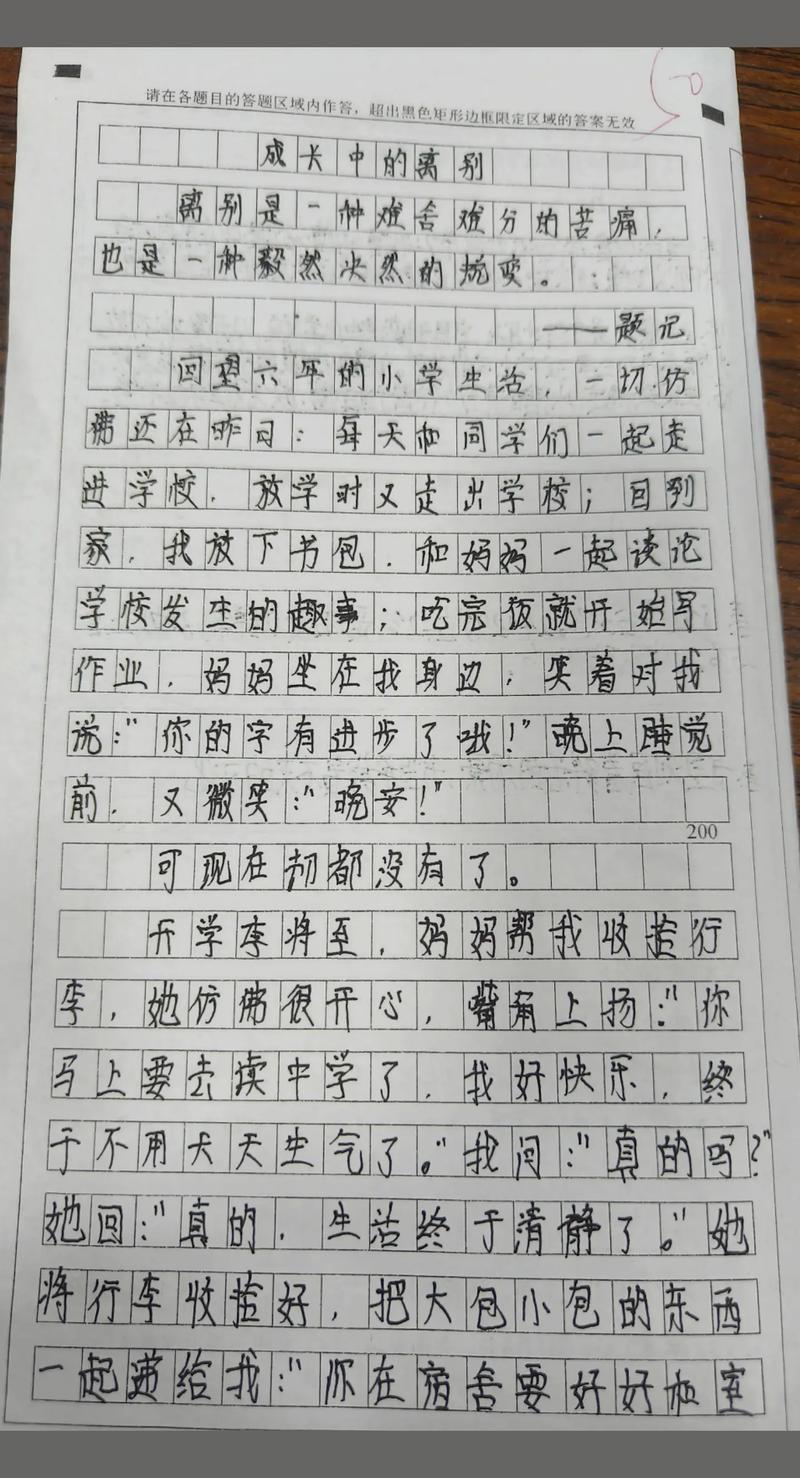 50
请在各题目的答题区域内作答，超出黑色矩形边框限定区域的答案无效
成长中的离别
离别是一种难舍难分的苦痛，
也是一种毅然决然的蜕变。
——题记
回望六年的小学生活，一切仿
佛还在昨日：每天和同学们一起走
进学校，放学时又走出学校；回到
家，我放下书包，和妈妈一起谈论
学校发生的趣事；吃完饭就开始写
作业，妈妈坐在我身边，笑着对我
说：“你的字有进步了哦！”晚上睡觉
前，又微笑：“晚安！”
200
可现在却都没有了。
开学季将至，妈妈帮我收拾行
李，她仿佛很开心，嘴角上扬：“你
马上要去读中学了，我好快乐，终
于不用天天生气了。”我问：“真的吗？”
她回：“真的，生活终于清静了。”她
将行李收拾好，把大包小包的东西
一起递给我：“你在宿舍要好好和室